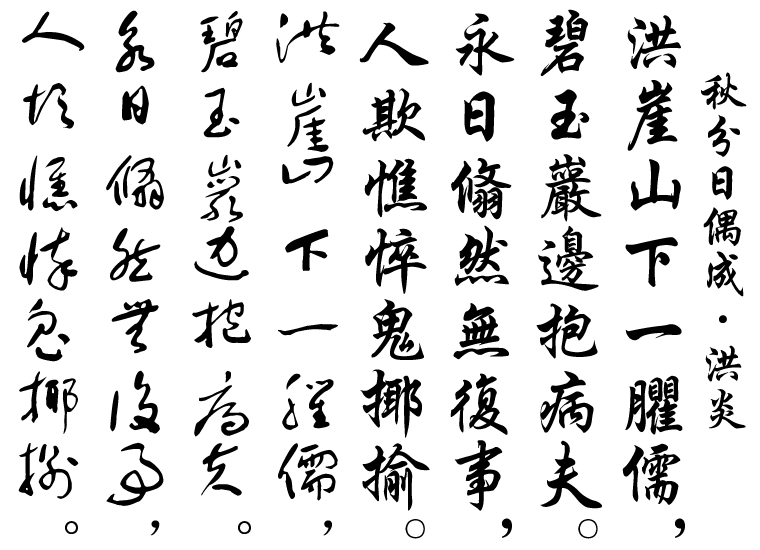 秋分日偶成·洪炎
洪崖山下一臞儒，
碧玉巖邊抱病夫。
永日翛然無復事，
人欺憔悴鬼揶揄。
洪崖山下一臞儒，
碧玉巖邊抱病夫。
永日翛然無復事，
人欺憔悴鬼揶揄。